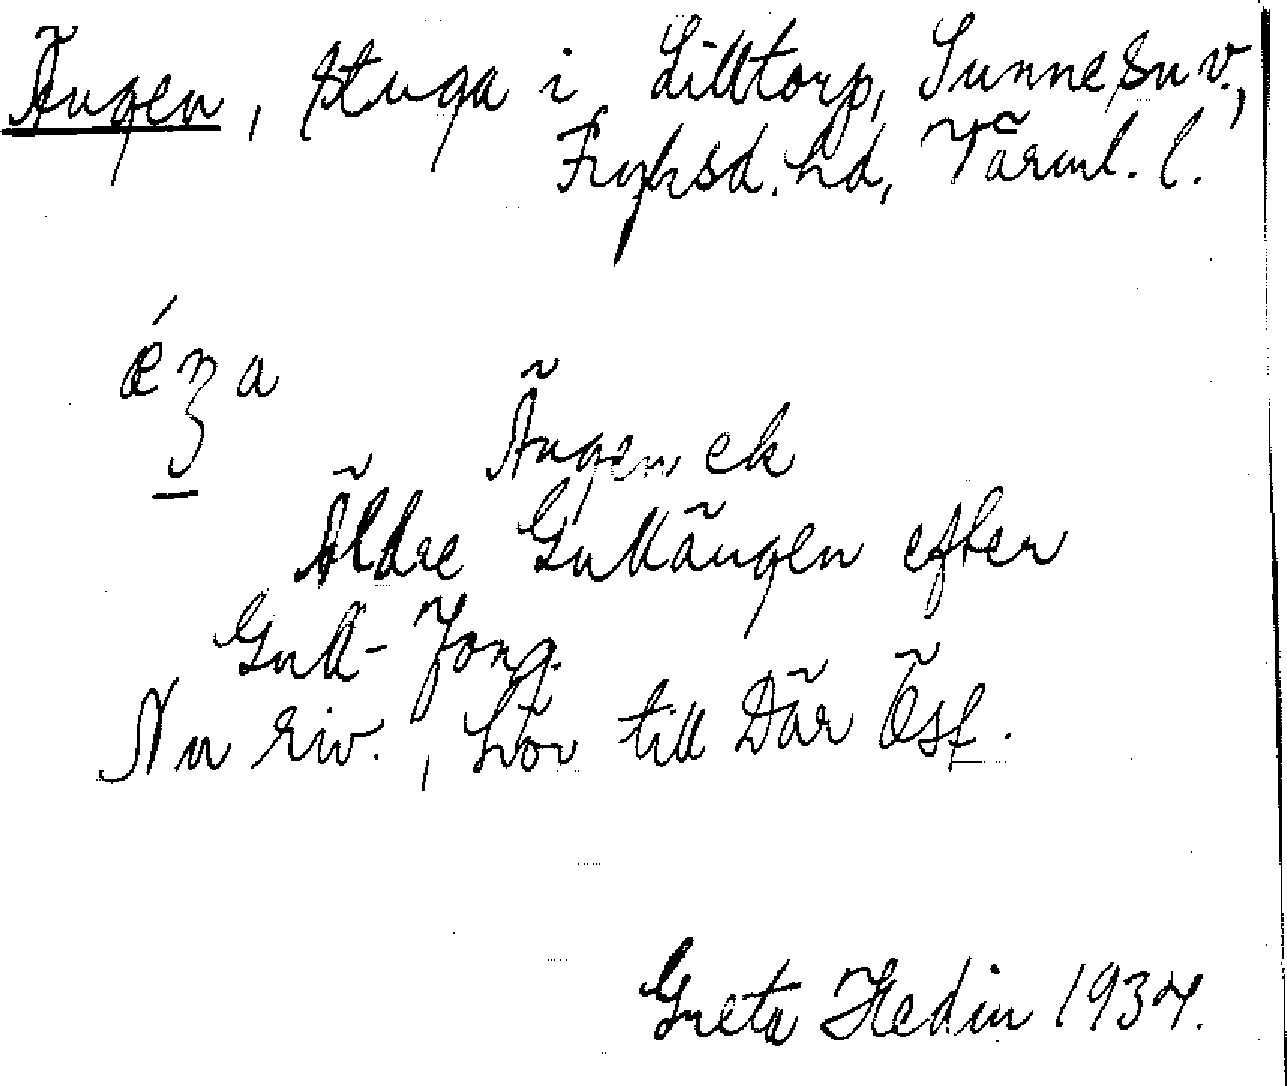 Ängen, stuga i Lilltorp, Sunne sn v.,
Fryksd. hd, Värml. l.
Ängen ek
Äldre Gullängen efter
Gull-Jong.
Nu riv., hör till Där Öst.
Greta Hedin 1934.